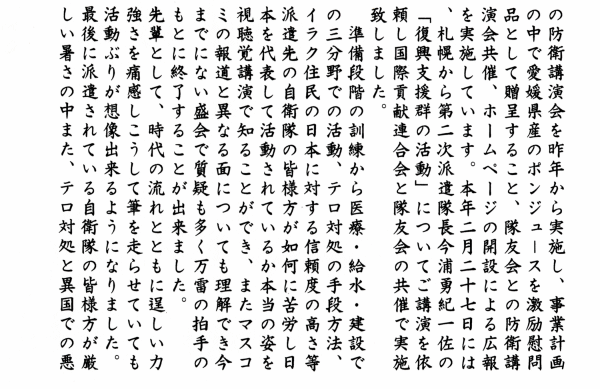 の防衛講演会を昨年から実施し、事業計画
の中で愛媛県産のポンジュースを激励慰問
品として贈呈すること、隊友会との防衛講
演会共催、ホームページの開設による広報
を実施しています。本年二月二十七日には
、札幌から第二次派遣隊長今浦勇紀一佐の
「復興支援群の活動」についてご講演を依
頼し国際貢献連合会と隊友会の共催で実施
致しました。
準備段階の訓練から医療・給水・建設で
の三分野での活動、テロ対処の手段方法、
イラク住民の日本に対する信頼度の高さ等
派遣先の自衛隊の皆様方が如何に苦労し日
本を代表して活動されているか本当の姿を
視聴覚講演で知ることができ、またマスコ
ミの報道と異なる面についても理解でき今
までにない盛会で質疑も多く万雷の拍手の
もとに終了することが出来ました。
先輩として、時代の流れとともに逞しい力
強さを痛感しこうして筆を走らせていても
活動ぶりが想像出来るようになりました。
最後に派遣されている自衛隊の皆様方が厳
しい暑さの中また、テロ対処と異国での悪